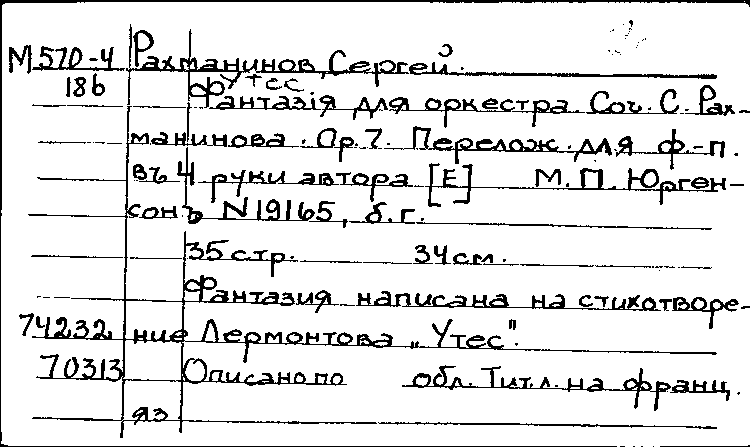 М570-4 Рахманинов, Сергей.
186 Утес
Фантазія для оркестра. Соч. С. Рах-
манинова. Ор.7. Перелож. для ф.-п.
въ 4 руки автора [E] М. П. Юрген-
сонъ N19165, б.г.
35 стр. 34 см.
Фантазия написана на стихотворе-
74232 ние Лермонтова „Утес".
70313 Описано по обл. Тит. л. на франц.
яз